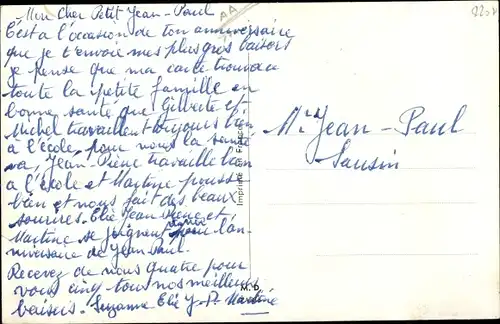 Mon Cher Petit Jean-Paul
C'est à l'occasion de ton anniversaire
que je t'envoie mes plus gros baisers
je pense que ma carte trouvera
toute la petite famille en
bonne santé que Gilberte et
Michel travaillent toujours bien
à l'école, pour nous la santé
va, Jean-Pierre travaille bien
à l'école et Martine pousse
bien et nous fait des beaux
sourires. Elie Jean Pierre et
Martine se joignent pour l'an-
niversaire de Jean Paul.
Recevez de nous quatre pour
vous cinq tous nos meilleurs
baisers. Suzanne Elie J-P. Martine
Mr Jean-Paul
Sausin
Imprimé en France
M.D.